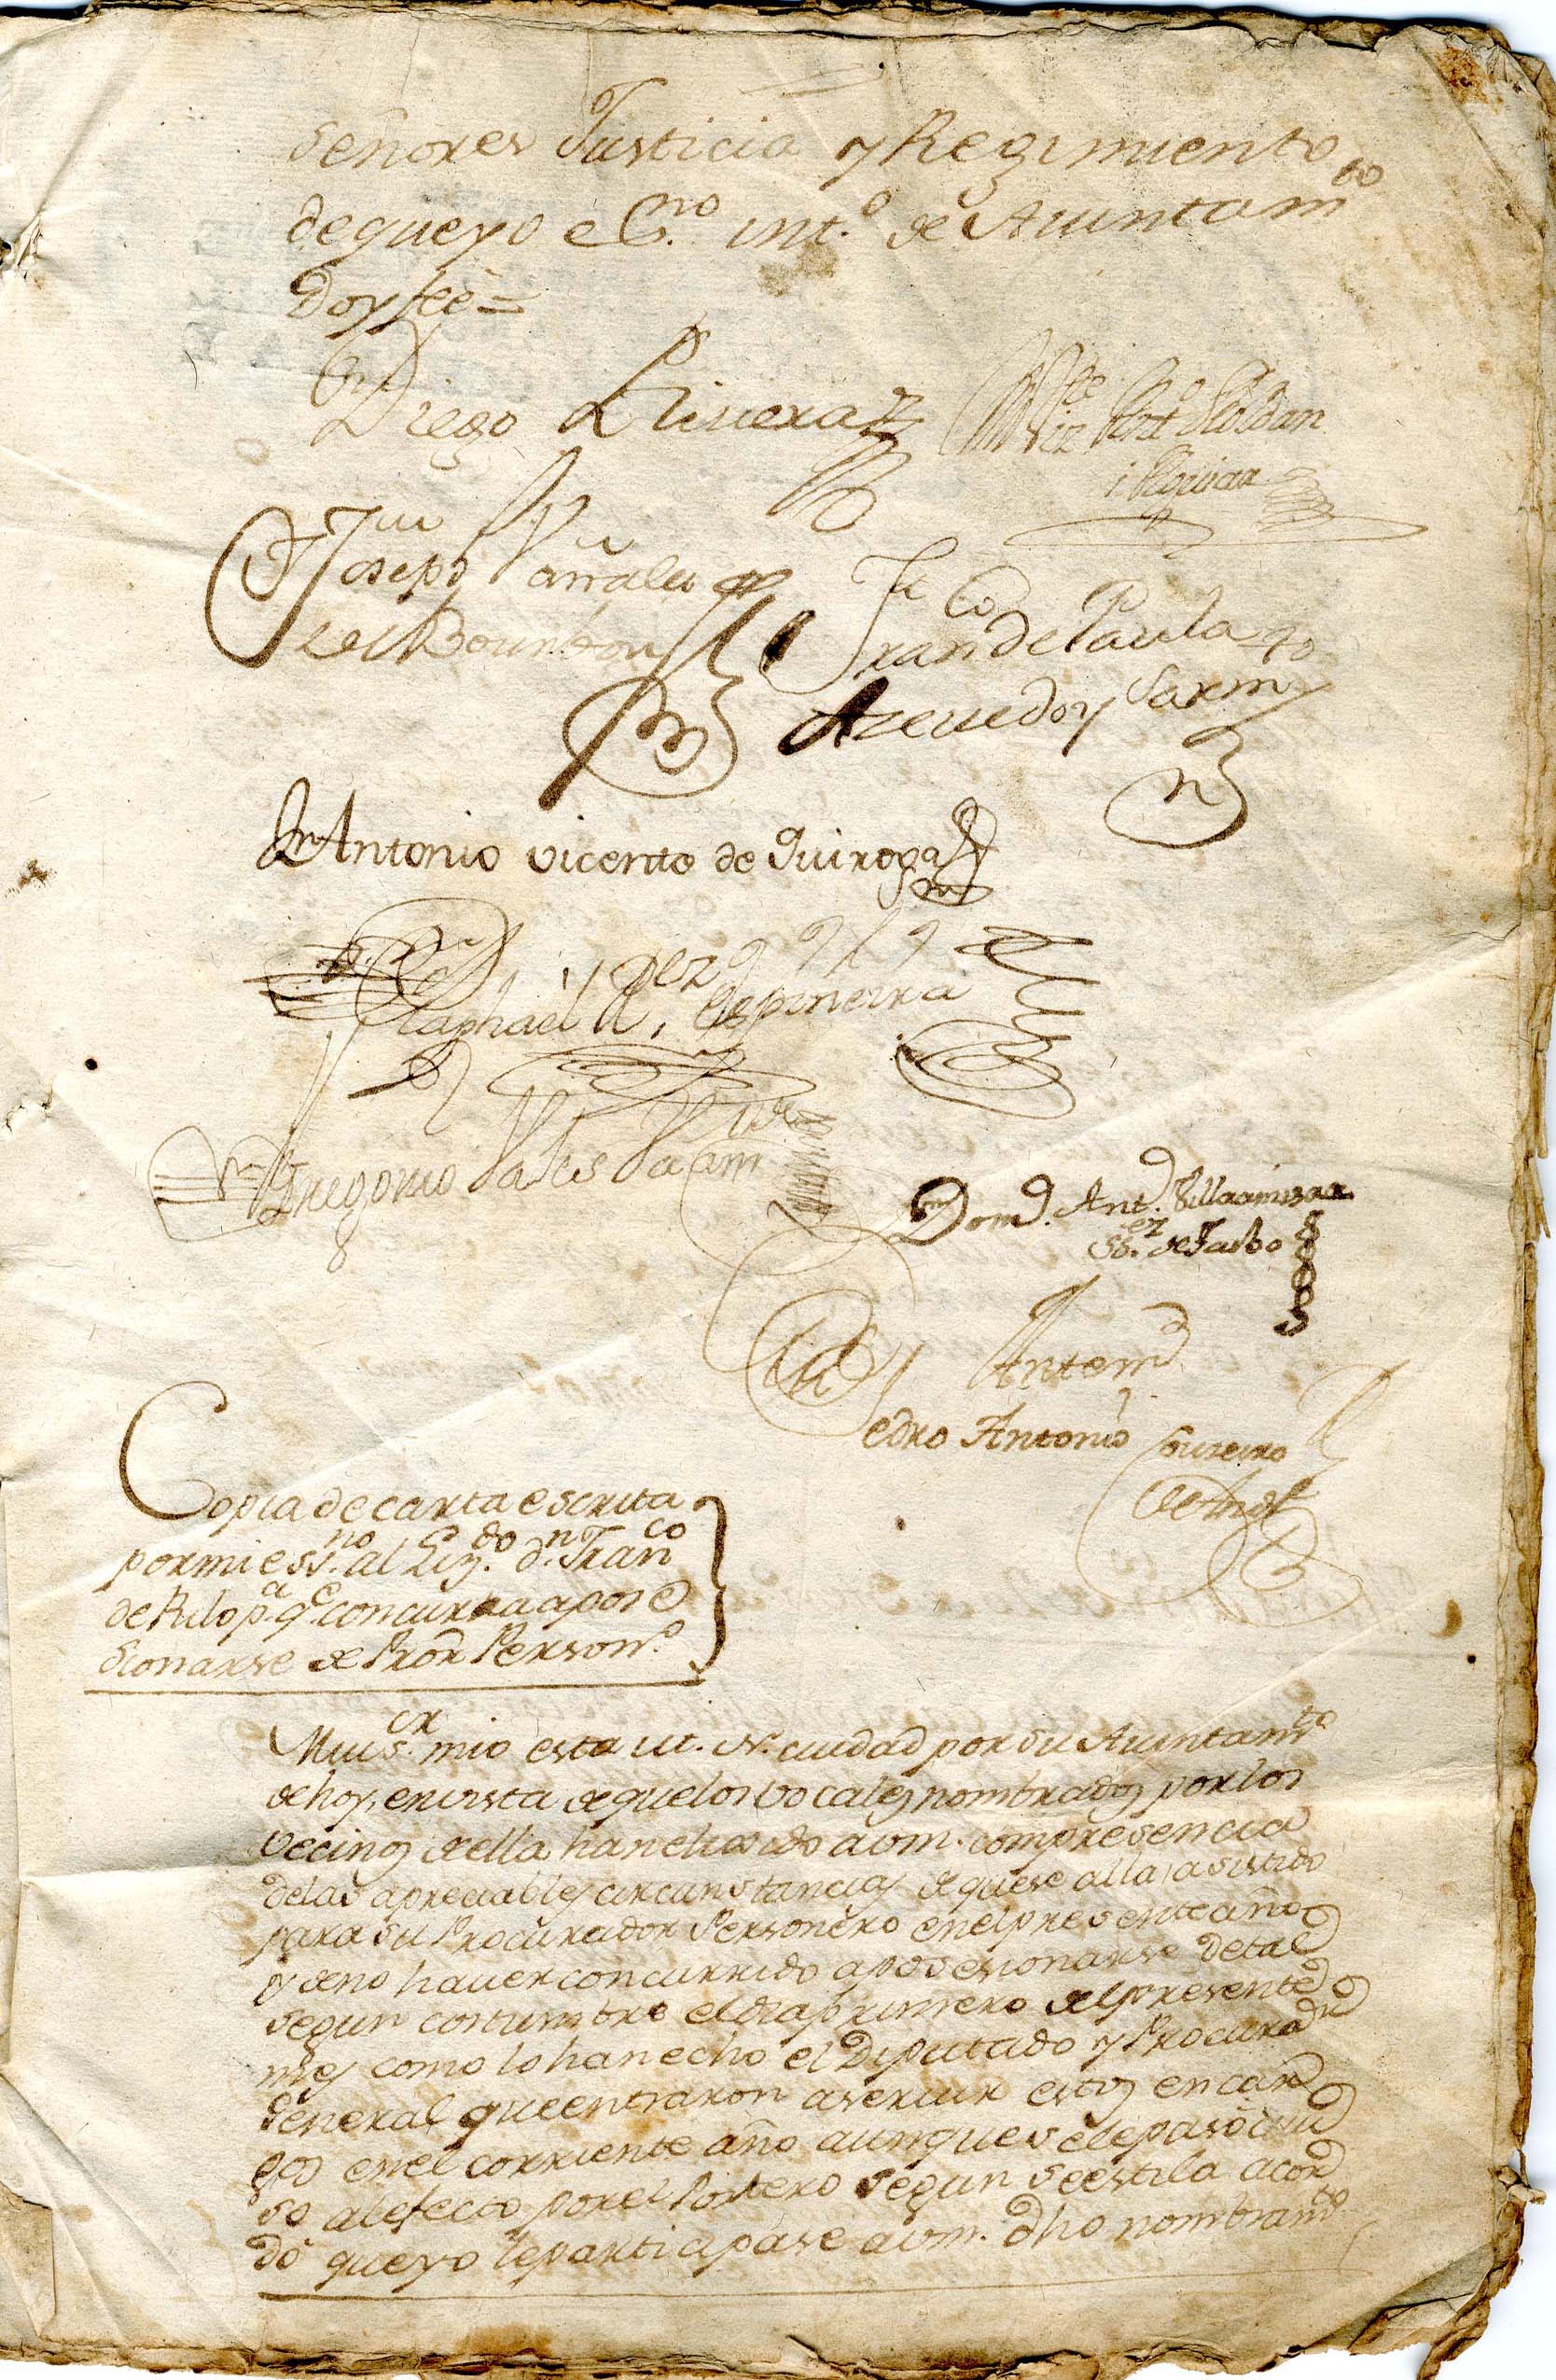 Señores Justicia y Regimiento
de que yo eSno. int.o de Aiuntamto
doy feé =
Dn Diego Riuera
Vizte Anto Roldan
i Aguiar
Joseph
Franco de Paula
Azeuedo y Sarmto
Dn Antonio Vicente de Quiroga
Raphael Espineira
Gregorio Vales
Domo. Anto. Villaamil
Antemi
Pedro Antonio Loureiro
Copia de carta escrita
por mi essno. al Lizdo. dn. Franco
de Rilo pa. qe. concurra a pose
sionarse de Pror Persono.
Mui sr. mio esta M. N. ciudad por su Aiuntamto
de hoy, en vista de que los vocales nombrados por los
vecinos de ella han elixido a vm. com presencia
de las apreciables circunstancias de que se alla asistido
para su Procurador Personero en el presente año
y de no hauer concurrido a posesionarse de tal
segun costumbre el dia primero del presente
mes como lo han echo el Diputado y Procurador
General que entraron a seruir estos encar
gos en el corriente año aunque se le pasó aui
so al efecto por el Portero segun se estila acor
dó que yo le participase a vm. dho nombramto